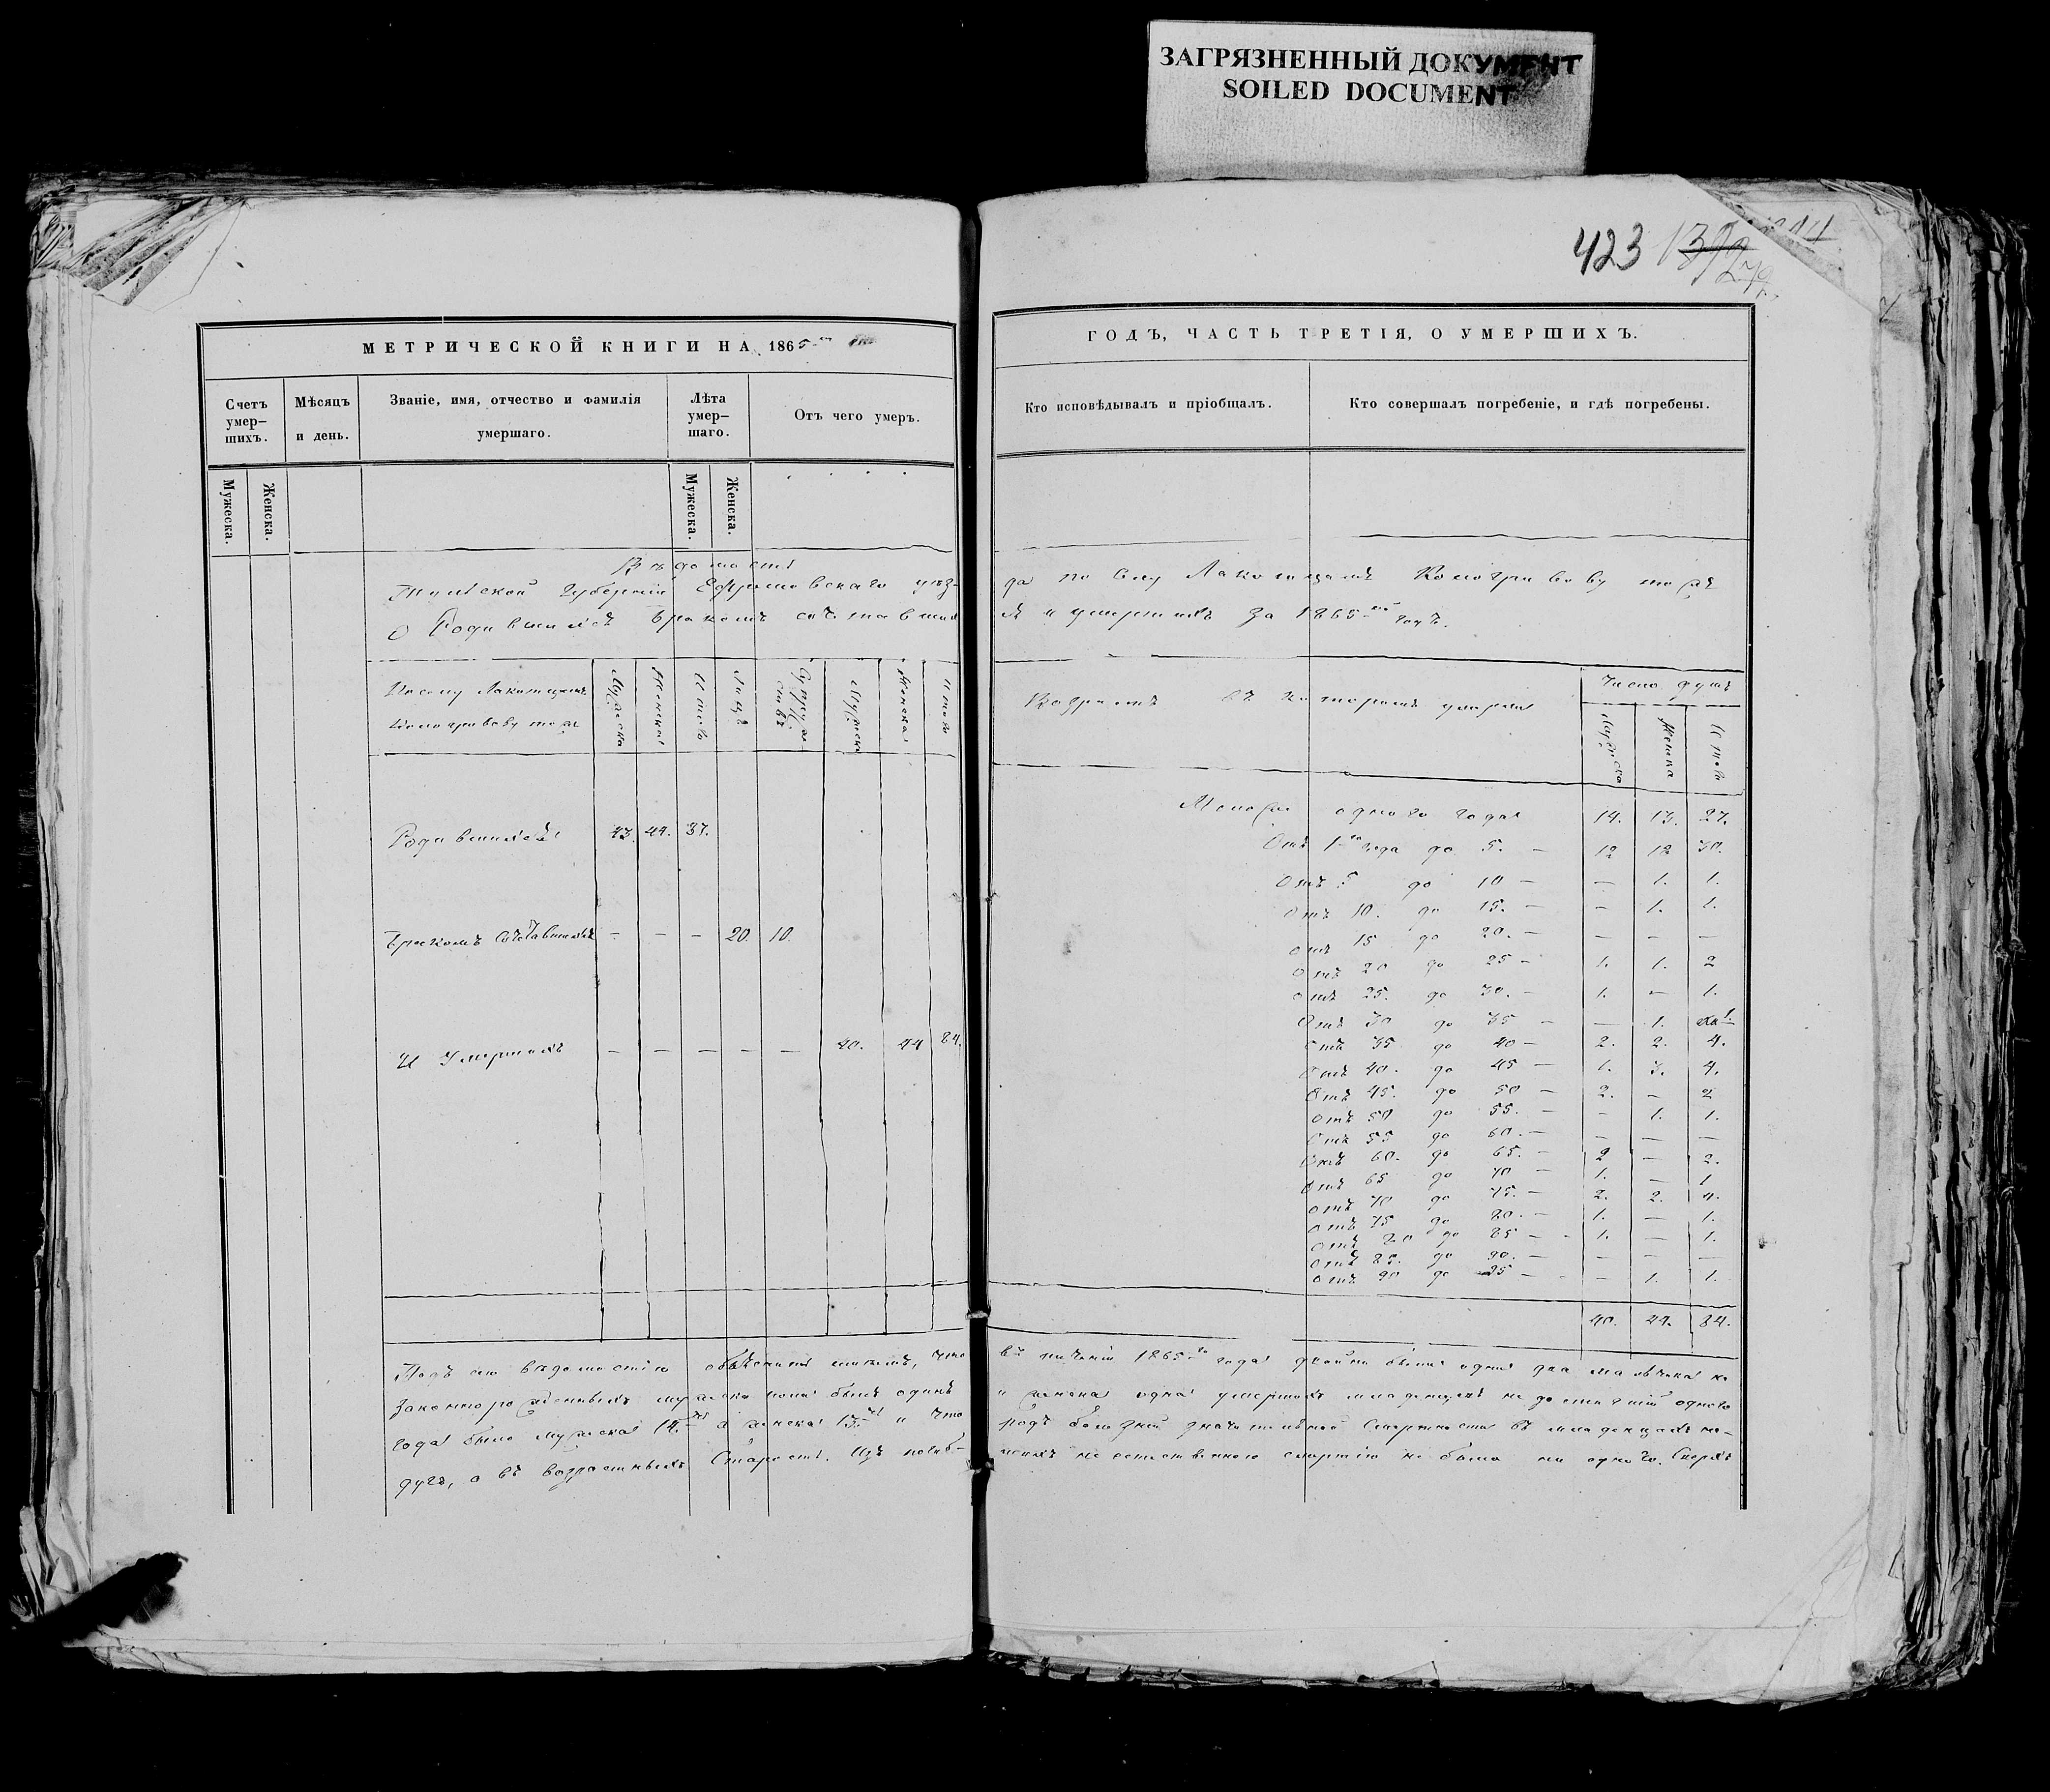 ЗАГРЯЗНЕННЫЙ ДОКУМЕНТ
SOILED DOCUMENT
423
МЕТРИЧЕСКОЙ КНИГИ НА 1865
Счетъ умер–шихъ.
Мѣсяцъ и день.
Званіе, имя, отчество и фамилія умершаго.
Лѣта умер–шаго.
Отъ чего умеръ.
Мужеска.
Женска.
Мужеска.
Женска.
Вѣдомость
Тульской Губерніи Ефремовскаго уѣз-
О Родившихся Бракомъ сочетавших
Мужеска
Женска
Итого
Лицъ
Супружествъ
Мужеска
Женска
Итого
Родившихся 43. 44. 37.
Бракомъ Сочетавшихся – – – 20. 10.
И Умершихъ – – – – – 40. 44 84.
Подъ сею вѣдомостію объясненіе имѣемъ, что
года было мужеска 14. а женска 13. и что
дугъ, а въ возрастныхъ Старость. Изъ погиб-
ГОДЪ, ЧАСТЬ ТРЕТІЯ, О УМЕРШИХЪ.
Кто исповѣдывалъ и пріобщалъ.
Кто совершалъ погребеніе, и гдѣ погребены.
да по Селу
и умершихъ за 1865 годъ.
Возрастъ въ которомъ умерли
Число душъ
Мужеска
Женска
Итого
Менѣе одного года 14. 13. 27.
Отъ 1 года до 5. – 12 18 30.
Отъ 5 до 10 – – 1. 1.
Отъ 10. до 15. – – 1. 1.
Отъ 15 до 20. – – – –
Отъ 20 до 25 – 1. 1. 2
Отъ 25. до 30. – 1. – 1.
Отъ 30 до 35 – – 1. 1.
Отъ 35 до 40 – 2. 2. 4.
Отъ 40. до 45 – 1. 3. 4.
Отъ 45. до 50 – 2. – 2
Отъ 50 до 55. – – 1. 1.
Отъ 55 до 60. – – – –
Отъ 60. до 65. – 2 – 2.
Отъ 65 до 70 – 1. – 1
Отъ 70 до 75. – 2. 2. 4.
Отъ 75 до 80. – 1. – 1.
Отъ 80 до 85 – 1. – 1.
Отъ 85. до 90. – – – –
Отъ 90 до 95 – – 1. 1.
40. 44. 84.
въ теченіи 1865 года двойни были одни два мальчика
и женска одна умершихъ младенцевъ не достигшій одного
родъ болѣзней значительной Смертности въ младенцахъ
неестественною смертію не было ни одного. Сверхъ